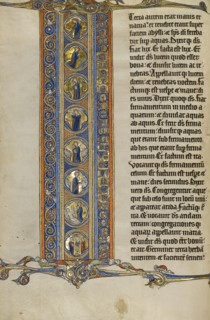 Terra autem erat inanis et
uacua: et tenebre erant super
faciem abyssi: et sps dei fereba
tur super aquas. Dixitq; ds.
fiat lux. Et facta est lux. Et
uidit ds lucem quod esset
bona: et diuisit lucem ac te
nebras. Appellauitq; lucem
diem et tenebras noctem. fa
ctumq; est uespe et mane di
es unus. Dixit quoq; ds. fiat
firmamentum in medio a
quarum: et diuidat aquas
ab aquis. Et fecit ds firma
mentum: diuisitq; aquas
que erant sub firmamento
ab hiis que erant super fir
mamentum. Et factum est ita.
Vocauitq; ds firmamentum
celum. Et factum est uespe et
mane dies secundus. Dixit
uero ds. Congregentur aque
que sub celo sunt in locum unum
et appareat arida. Factumq; est
ita. Et uocauit ds aridam
terram: congregationesq;
aquarum appellauit maria.
Et uidit ds quod esset bonum
et ait. Germinet terra herbam
uirentem et facientem semen: